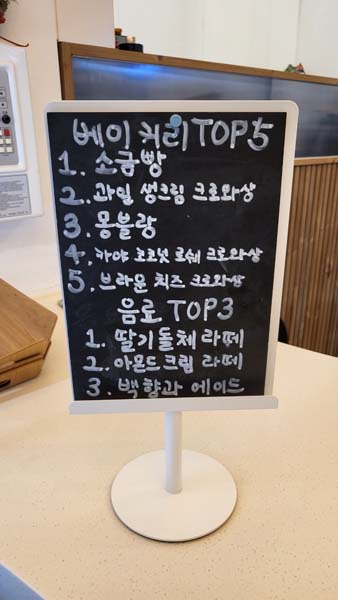 베이커리 TOP5
1. 소금빵
2. 과일 생크림 크로와상
3. 몽블랑
4. 카야 코코넛 로쉐 크로와상
5. 브라운 치즈 크로와상
음료 TOP3
1. 딸기듬체 라떼
2. 아몬드크림 라떼
3. 백향과 에이드